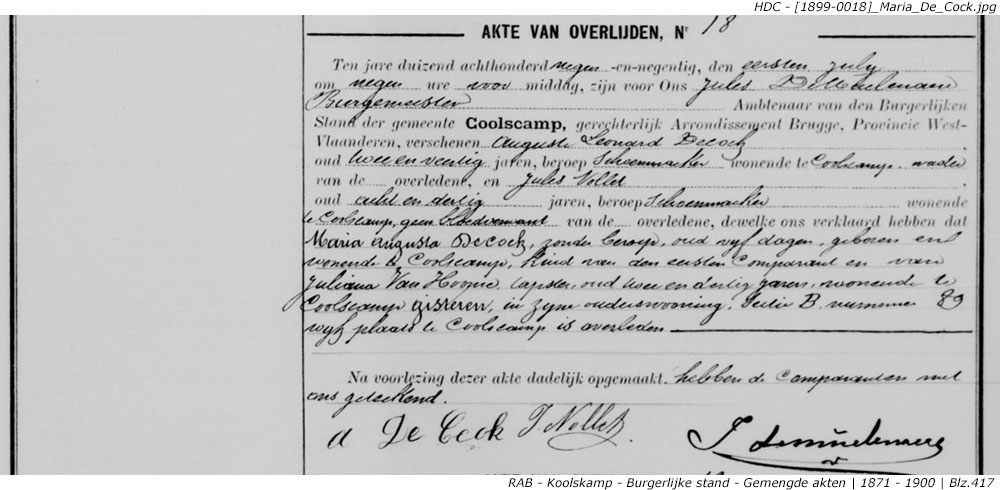 HDC - [1899-0018]_Maria_De_Cock.jpg
AKTE VAN OVERLIJDEN, Nr 18
Ten jare duizend achthonderd negen -en-negentig, den eersten july
om negen ure voor middag, zijn voor Ons Jules
Burgemeester Ambtenaar van den Burgerlijken
Stand der gemeente Coolscamp, gerechterlijk Arrondissement Brugge, Provincie West-
Vlaanderen, verschenen Auguste Leonard Decock
oud twee en veertig jaren, beroep Schoenmaeker wonende te Coolscamp vader
van de overledene, en Jules Nollet
oud acht en dertig jaren, beroep Schoenmaeker wonende
te Coolscamp, geen bloedverwant van de overledene, dewelke ons verklaard hebben dat
Maria Augusta Decock, zonder beroep, oud vyf dagen, geboren en
wonende te Coolscamp, kind van den eersten Comparant en van
Juliana Van Hoorne, oud twee en dertig jaren, wonende te
Coolscamp gisteren, in zyne ouderswoning, Sectie B nummer 89
wyk plaats te Coolscamp is overleden
Na voorlezing dezer akte dadelijk opgemaakt, hebben de Comparanten met
ons geteekend.
A De Cock J. Nollet
RAB - Koolskamp - Burgerlijke stand - Gemengde akten | 1871 - 1900 | Blz.417